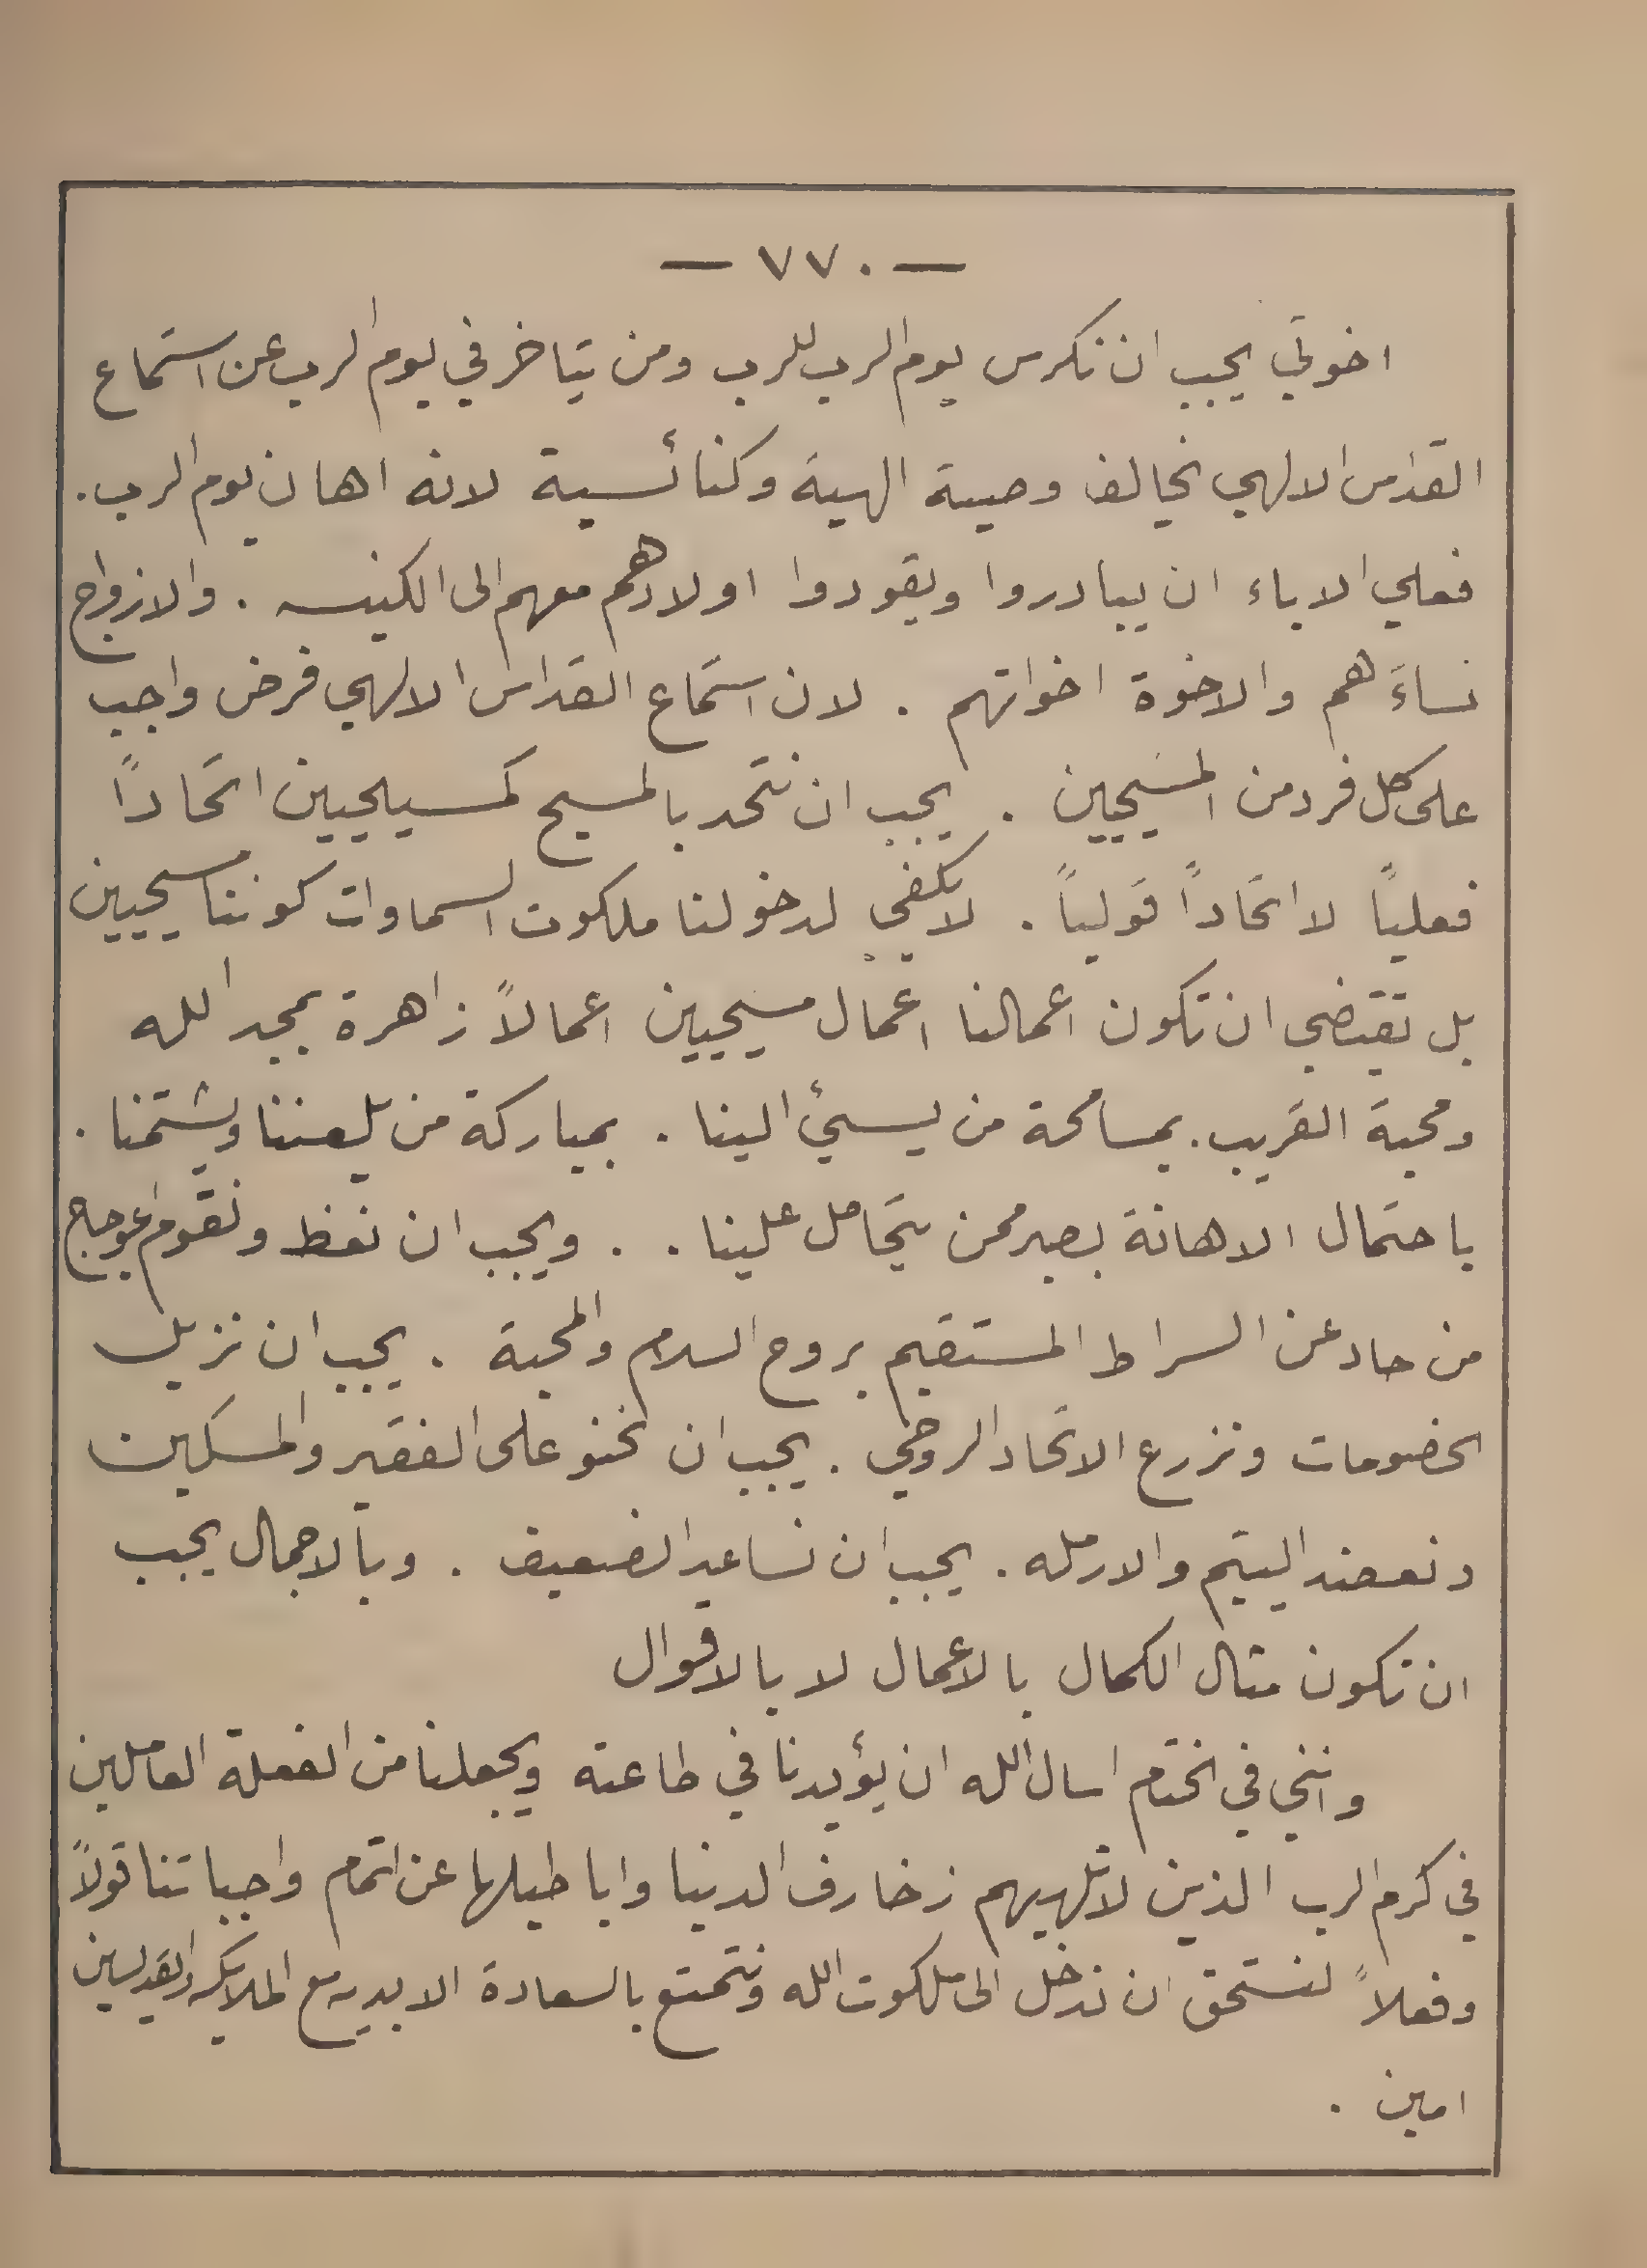 — ٧٧٠ —
اخوتي يجب ان نكرس يوم الرب للرب ومن يتاخر في يوم الرب عن استماع
القداس الالهي يخالف وصية الهية وكنائسية لانه اهان يوم الرب .
فعلي الاباء ان يبادروا ويقودوا اولادهم معهم الى الكنيسه . والازواج
نساءَهم والاخوة اخواتهم . لان استماع القداس الالهي فرض واجب
على كل فرد من المسيحيين . يجب ان نتحد بالمسيح كمسيحيين اتحاداً
فعلياً لا اتحاداً قولياً . لا يكفي لدخولنا ملكوت السماوات كوننا مسيحيين
بل تقتضي ان تكون اعمالنا اعمال مسيحيين اعمالاً زاهرة بمجد الله
ومحبة القريب . بمسامحة من يسيئ الينا . بمباركة من يلعننا ويشتمنا .
باحتمال الاهانة بصبر ممن يتحامل علينا . . ويجب ان نعظ ونقوم عوجاج
من حاد عن السراط المستقيم بروح السلام والمحبة . يجب ان نزيل
الخصومات ونزرع الاتحاد الروحي . يجب ان نحنو على الفقير والمسكين
ونعضد اليتيم والارمله . يجب ان نساعد الضعيف . وبالاجمال يجب
ان نكون مثال الكمال بالاعمال لا بالاقوال
وانني في الختام اسال الله ان يؤيدنا في طاعته ويجعلنا من الفعلة العاملين
في كرم الرب الذين لا تلهيهم زخارف الدنيا واباطيلها عن اتمام واجباتنا قولاً
وفعلاً لنستحق ان ندخل الى ملكوت الله ونتمتع بالسعادة الابديه مع الملايكه والقديسين
امين .